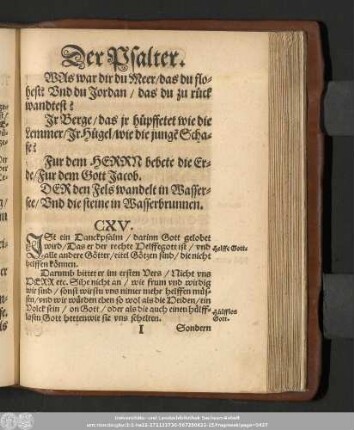 Der Psalter.
WAs war dir du Meer/das du flo-
hest? Vnd du Jordan / das du zu rück
wandtest?
Jr Berge/das jr hüpffetet wie die
Lemmer/Jr Hügel/wie die jungẽ Scha-
fe?
Fur dem HERRN bebete die Er-
de/Fur dem Gott Jacob.
DER den Fels wandelt in Wasser-
see/Vnd die steine in Wasserbrunnen.
CXV.
ISt ein Danckpsalm / darinn Gott gelobet
wird/Das er der rechte Helffegott ist / vnd
alle andere Götter/eitel Götzen sind/die nicht
helffen können.
Helffe Gott.
Darumb bittet er im ersten Vers / Nicht vns
HERR etc. Sihe nicht an / wie frum vnd wirdig
wir sind / sonst wirstu vns nimer mehr helffen müs-
sen/vnd wir würden eben so wol als die Heiden/ein
Volck sein / on Gott / oder als die auch einen hülff-
losen Gott hetten wie sie vns schelten.
Hülfflos
Gott.
I Sondern
Universitäts- und Landesbibliothek Sachsen-Anhalt